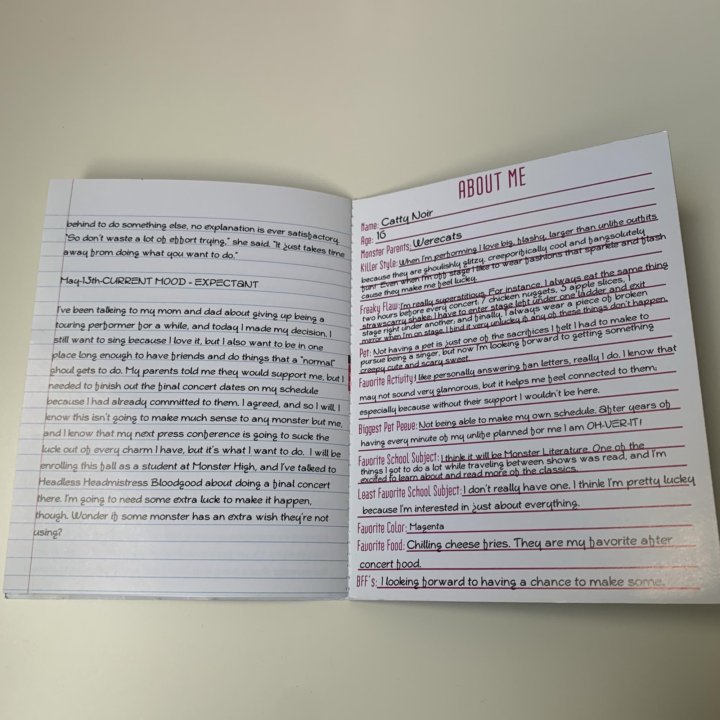 behind to do something else, no explanation is ever satisfactory.
"So don't waste a lot of effort trying," she said. "It just takes time
away from doing what you want to do."
May-13th-CURRENT MOOD - EXPECTANT
I've been talking to my mom and dad about giving up being a
touring performer for a while, and today I made my decision. I
still want to sing because I love it, but I also want to be in one
place long enough to have friends and do things that a "normal"
ghoul gets to do. My parents told me they would support me, but I
needed to finish out the final concert dates on my schedule
because I had already committed to them. I agreed, and so I will. I
know this isn't going to make much sense to any monster but me,
and I know that my next press conference is going to suck the
luck out of every charm I have, but it's what I want to do. I will be
enrolling this fall as a student at Monster High, and I've talked to
Headless Headmistress Bloodgood about doing a final concert
there. I'm going to need some extra luck to make it happen,
though. Wonder if some monster has an extra wish they're not
using?
ABOUT ME
Name: Catty Noir
Age: 16
Monster Parents: Werecats
Killer Style: When I'm performing I love big, flashy, larger than unlife outfits
because they are ghoulishly glitzy, creeporifically cool and fangsolutely
fun! Even when I'm off stage I like to wear fashions that sparkle and flash
cause they make me feel lucky.
Freaky Flaw: I'm really superstitious. For instance, I always eat the same thing
two hours before every concert, 7 chicken nuggets, 5 apple slices, 1
strawscarry shake. I have to enter stage left under one ladder and exit
stage right under another, and finally, I always wear a piece of broken
mirror when I'm on stage. I find it very unlucky if any of these things don't happen.
Pet: Not having a pet is just one of the sacrifices I felt I had to make to
pursue being a singer, but now I'm looking forward to getting something
creepy cute and scary sweet.
Favorite Activity: I like personally answering fan letters, really I do. I know that
may not sound very glamorous, but it helps me feel connected to them,
especially because without their support I wouldn't be here.
Biggest Pet Peeve: Not being able to make my own schedule. After years of
having every minute of my unlife planned for me I am OH-VER-IT!
Favorite School Subject: I think it will be Monster Literature. One of the
things I got to do a lot while traveling between shows was read, and I'm
excited to learn about and read more of the classics.
Least Favorite School Subject: I don't really have one. I think I'm pretty lucky
because I'm interested in just about everything.
Favorite Color: Magenta
Favorite Food: Chilling cheese fries. They are my favorite after
concert food.
BFF's: I looking forward to having a chance to make some.